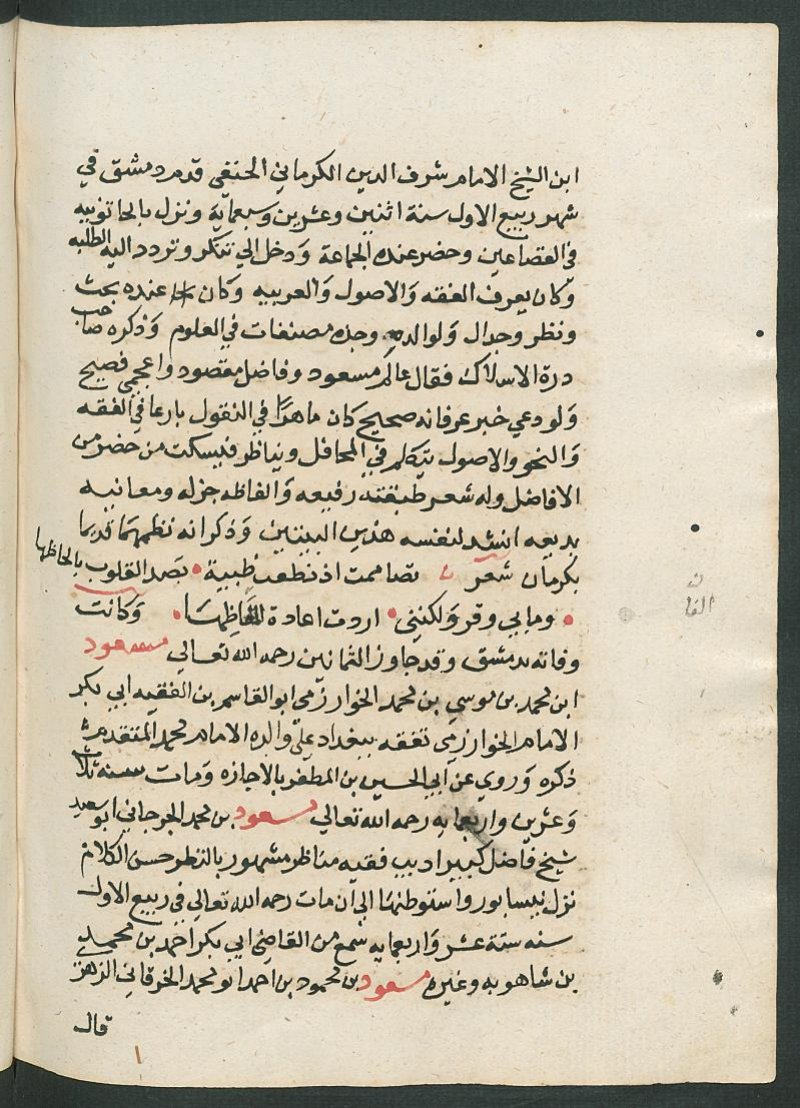 ابن الشيخ الامام شرف الدين الكرماني الحنفي قدم دمشق في
شهر ربيع الاول سنة اثنين وعشرين وسبعماية ونزل بالخاتونيه
في القصاعين وحضر عنده الجماعة ودخل الي تنكز وتردد اليه الطلبه
وكان يعرف الفقه والاصول والعربيه وكان عنده بحث
ونظر وجدال ولوالده وجده مصنفات في العلوم وذكره صاحب
درة الاسلاك فقال عالم مسعود وفاضل مقصود واعجمي فصيح
ولودعي خبر عرفانه صحيح كان ماهرا في النقول بارعا في الفقه
والنحو والاصول يتكلم في المحافل ويناظر فيسكت من حضر من
الافاضل وله شعر طبقته رفيعه والفاظه جزله ومعانيه
بديعه انشد لنفسه هذين البيتين وذكر انه نظمهما قديما
بكرمان شعر تصاممت اذ نطعت ظبية تصد القلوب بالحاظها
وما بي وقر ولكنني اردت اعادة الفاظها وكانت
وفاته بدمشق وقد جاوز الثمانين رحمه الله تعالي مسعود
ابن محمد بن موسي بن محمد الخوارزمي ابو القاسم بن الفقيه ابي بكر
الامام الخوارزمي تفقه ببغداد علي والده الامام محمد المتقدم
ذكره وروي عن ابي الحسين بن المظفر بالاجازه ومات سنة ثلاث
وعشرين واربعمايه رحمه الله تعالي مسعود بن محمد الجرجاني ابو سعيد
شيخ فاضل كبير اديب فقيه مناظر مشهور بالنظر حسن الكلام
نزل نيسابور واستوطنها الي ان مات رحمه الله تعالي في ربيع الاول
سنه ستة عشر واربعمايه سمع من القاضي ابي بكر احمد بن محمد
بن شاهويه وغيره مسعود بن محمود بن احمد ابو محمد الخرقاني
قال